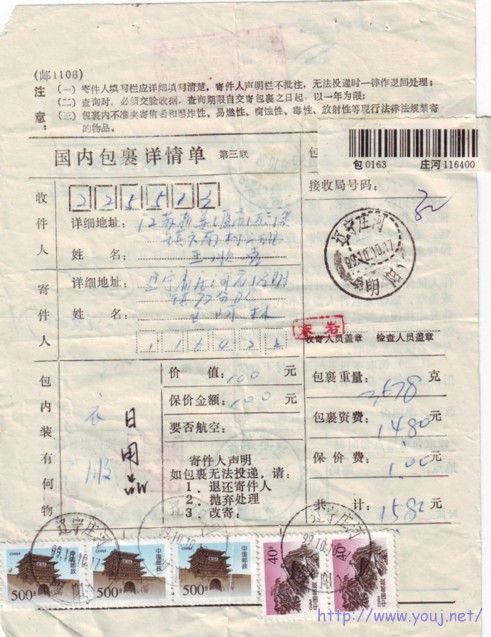 (邮1106)
注意：
(一) 寄件人填写栏应详细填写清楚，寄件人声明栏不批注，无法投递时一律作退回处理；
(二) 查询时、必须交验收据，查询期限自交寄包裹之日起，以一年为限；
(三) 包裹内不准夹寄信函和爆炸性、易燃性、腐蚀性、毒性、放射性等现行法律法规禁寄的物品。
包0163 庄河116400
国内包裹详情单 第三联
接收局号码：
收件人
225513
详细地址：
姓名：
辽宁庄河
99.10.10.17
明阳
寄件人
详细地址：
姓名：
116423
收寄人员盖章 检查人员盖章
包内装有何物
衣服
日用品
价值：100元
保价金额：100元
要否航空：
包裹重量：3678克
包裹资费：1480元
保价费：1.00元
共计：1580元
寄件人声明
如包裹无法投递，请：
1．退还寄件人
2．抛弃处理
3．改寄：
辽宁庄河
99.10.10
辽宁庄河
99.10.1
中国邮政
CHINA
500分
中国邮政
CHINA
500分
中国邮政
CHINA
500分
40分
40分
http://www.youj.net/